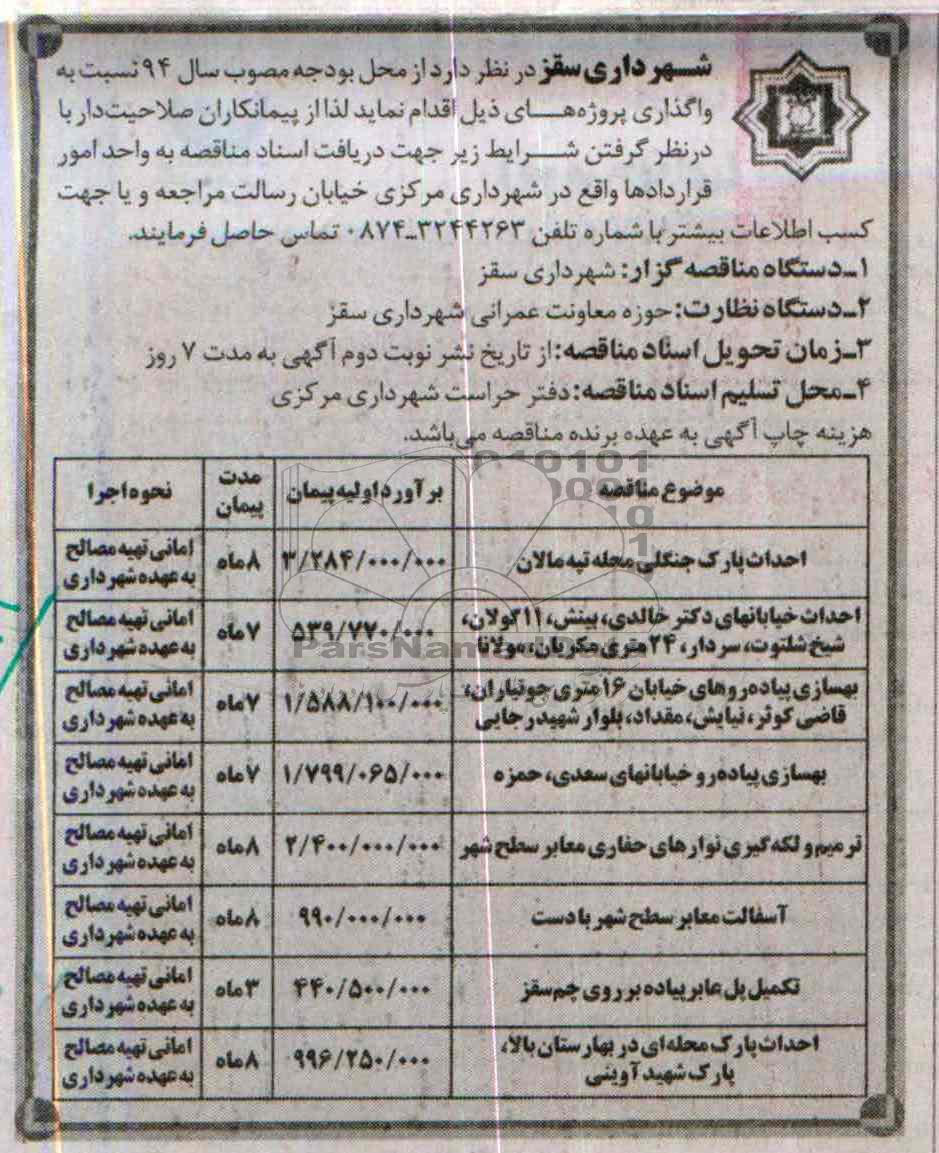 شهرداری سقز در نظر دارد از محل بودجه مصوب سال ۹۴ نسبت به
واگذاری پروژه‌های ذیل اقدام نماید لذا از پیمانکاران صلاحیت‌دار با
درنظر گرفتن شرایط زیر جهت دریافت اسناد مناقصه به واحد امور
قراردادها واقع در شهرداری مرکزی خیابان رسالت مراجعه و یا جهت
کسب اطلاعات بیشتر با شماره تلفن ۳۲۴۴۲۶۳-۰۸۷۴ تماس حاصل فرمایند.
۱ـ دستگاه مناقصه گزار: شهرداری سقز
۲ـ دستگاه نظارت: حوزه معاونت عمرانی شهرداری سقز
۳ـ زمان تحویل اسناد مناقصه: از تاریخ نشر نوبت دوم آگهی به مدت ۷ روز
۴ـ محل تسلیم اسناد مناقصه: دفتر حراست شهرداری مرکزی
هزینه چاپ آگهی به عهده برنده مناقصه می‌باشد.
موضوع مناقصه برآورد اولیه پیمان مدت پیمان نحوه اجرا
احداث پارک جنگلی محله تپه مالان ۳/۲۸۴/۰۰۰/۰۰۰ ۸ ماه امانی تهیه مصالح
به عهده شهرداری
احداث خیابانهای دکتر خالدی، بینش، ۱۱ گولان،
شیخ شلتوت، سردار، ۲۴ متری مکریان، مولانا ۵۳۹/۷۷۰/۰۰۰ ۷ ماه امانی تهیه مصالح
به عهده شهرداری
بهسازی پیاده‌روهای خیابان ۱۶ متری جوتیاران،
قاضی کوثر، نیایش، مقداد، بلوار شهید رجایی ۱/۵۸۸/۱۰۰/۰۰۰ ۷ ماه امانی تهیه مصالح
به عهده شهرداری
بهسازی پیاده‌رو خیابانهای سعدی، حمزه ۱/۷۹۹/۰۶۵/۰۰۰ ۷ ماه امانی تهیه مصالح
به عهده شهرداری
ترمیم و لکه گیری نوارهای حفاری معابر سطح شهر ۲/۴۰۰/۰۰۰/۰۰۰ ۸ ماه امانی تهیه مصالح
به عهده شهرداری
آسفالت معابر سطح شهر با دست ۹۹۰/۰۰۰/۰۰۰ ۸ ماه امانی تهیه مصالح
به عهده شهرداری
تکمیل پل عابر پیاده بر روی چم سقز ۴۴۰/۵۰۰/۰۰۰ ۳ ماه امانی تهیه مصالح
به عهده شهرداری
احداث پارک محله‌ای در بهارستان بالا،
پارک شهید آوینی ۹۹۶/۲۵۰/۰۰۰ ۸ ماه امانی تهیه مصالح
به عهده شهرداری